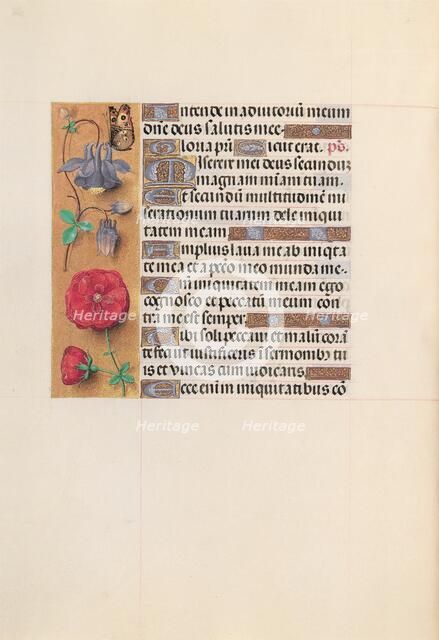 Intende in adiutoriū meum
dñe deus salutis mee
Gloria pr̄i Sicut erat. ps̄.
Miserere mei deus secundū
magnam miām tuam.
Et secundū multitudinē mi
serationum tuarum dele iniqui
tatem meam
Amplius laua me ab iniqta
te mea et a pcc̄o meo munda me.
Qm̄ iniquitatem meam ego
cognosco et peccatū meum con
tra me est semper
Tibi soli peccaui et malū corā
te feci ut iustificeris ī sermonibꝰ tu
is et vincas cum iudicaris
Ecce enim in iniquitatibus cō
Heritage Heritage
Heritage Heritage